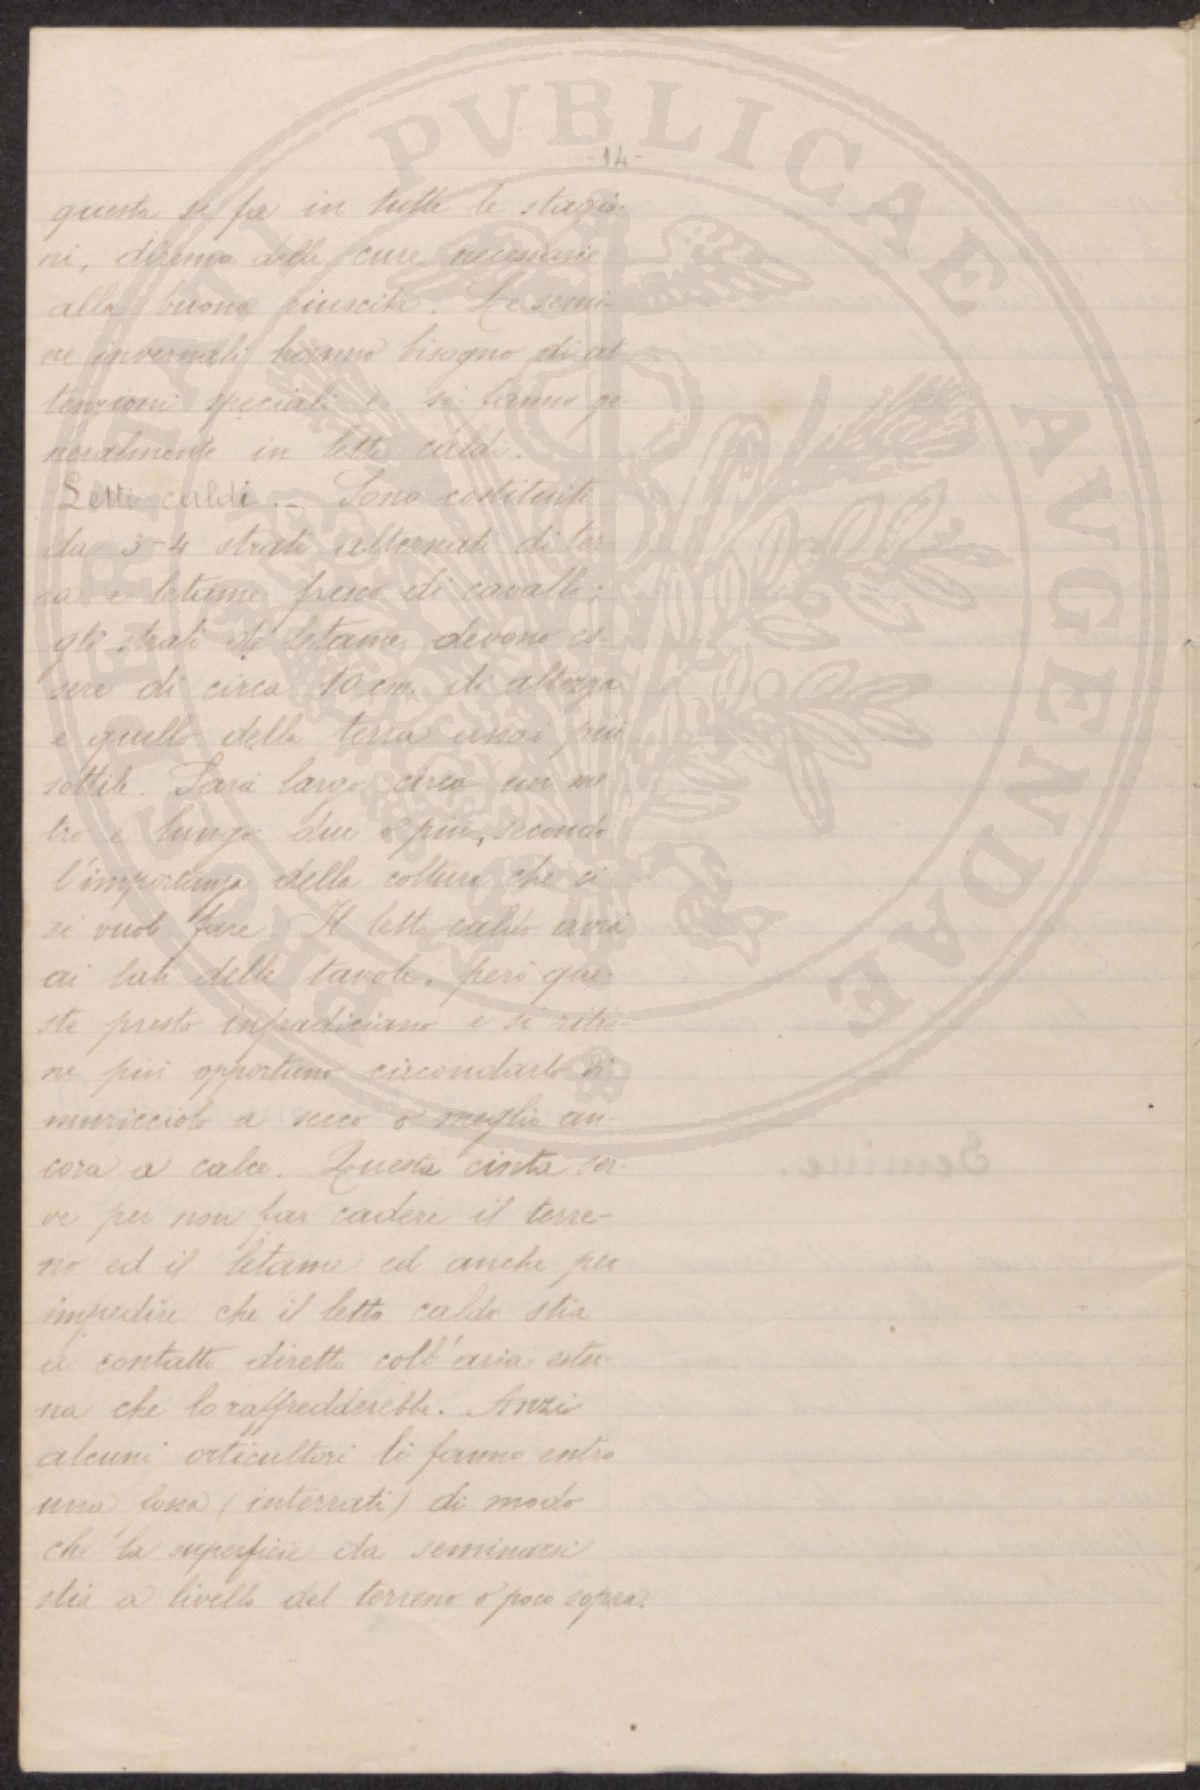 -14-
questa si fa in tutte le stagio-
ni, diremo delle cure necessarie
alla buona riuscita. Le semi-
ne invernali hanno bisogno di at-
tenzioni speciali e si fanno ge-
neralmente in letti caldi.
Letti caldi — Sono costituiti
da 3-4 strati alternati di ter-
ra e letame fresco di cavallo;
gli strati di letame devono es-
sere di circa 10 cm. di altezza
e quello della terra assai più
sottile. Sarà largo circa un me
tro e lungo due o più, secondo
l'importanza della coltura che ci
si vuol fare. Il letto caldo avrà
ai lati delle tavole, però que-
ste presto infradiciano e si ritie-
ne più opportuno circondarlo di
muricciolo a secco o meglio an-
cora a calce. Questa cinta ser-
ve per non far cadere il terre-
no ed il letame ed anche per
impedire che il letto caldo stia
a contatto diretto coll'aria ester-
na che lo raffredderebbe. Anzi
alcuni orticultori li fanno entro
una fossa (interrati) di modo
che la superficie da seminarsi
stia a livello del terreno o poco sopra.
PROSPERITATI PVBLICAE AVGENDAE
Semine.